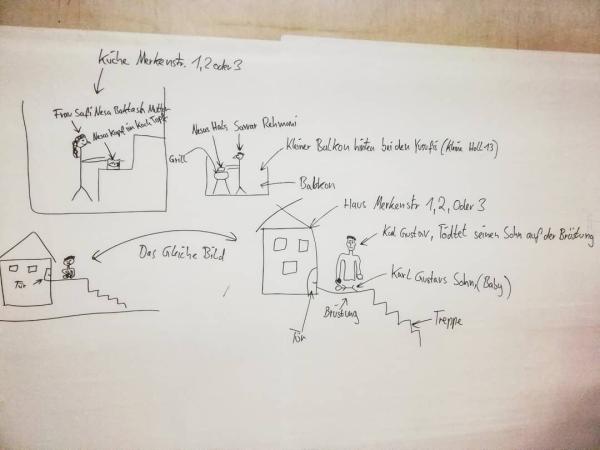 Küche Merkenstr. 1,2 oder 3
Frau Safi Nesa Baktash Mutter
Nesas Kopf im Koch Topf
Nesas Hals Sarwar Rehmani
Grill
Kleiner Balkon hinten bei den (Khina Holl 13)
Babkon
Haus Merkenstr 1, 2, Oder 3
Karl Gustav, Tödtet seinen Sohn auf der Brüstung
Das Gleiche Bild
Karl Gustavs Sohn, (Baby)
Tür
Brüstung
Treppe
Tür